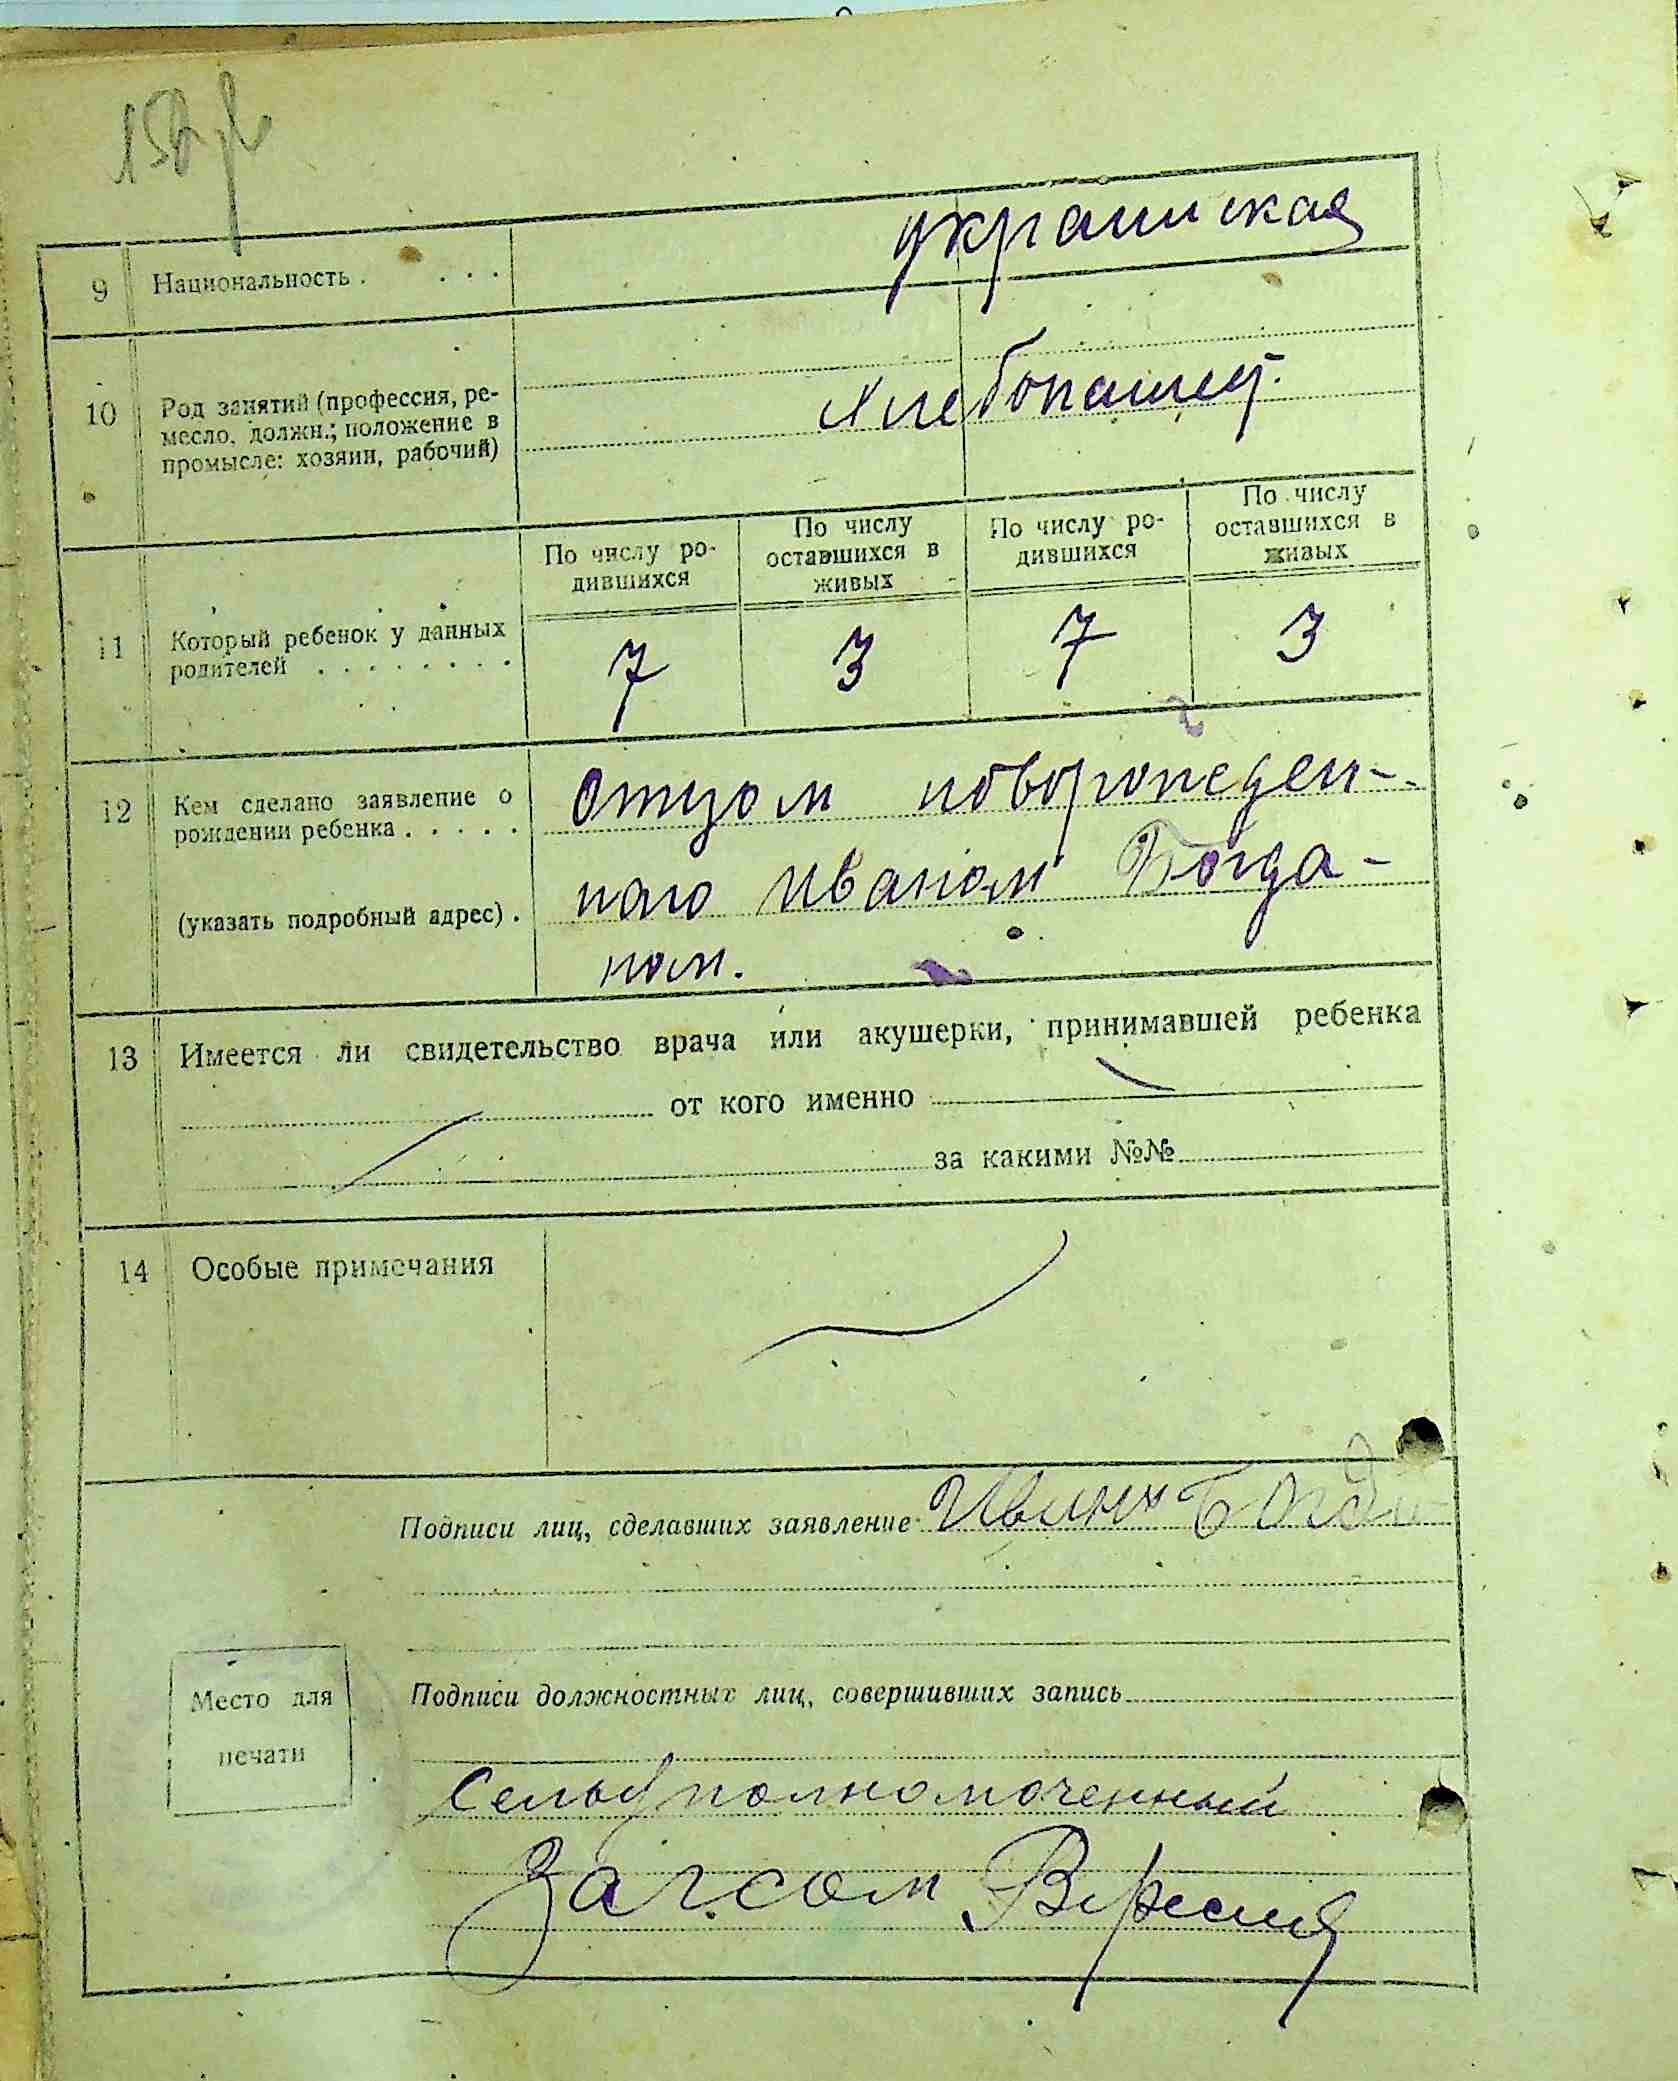 9 Национальность . . . . украинская
10 Род занятий (профессия, ре-
месло, должн.; положение в
промысле: хозяин, рабочий)
хлебопашец.
По числу ро-
дившихся
По числу
оставшихся в
живых
По числу ро-
дившихся
По числу
оставшихся в
живых
11 Который ребенок у данных
родителей . . . . . . . .
7 3 7 3
12 Кем сделано заявление о
рождении ребенка . . . . .
(указать подробный адрес) .
Отцом новорожден-
ного Иваном Богда-
ном.
13 Имеется ли свидетельство врача или акушерки, принимавшей ребенка
от кого именно
за какими №№
14 Особые примечания
Подписи лиц, сделавших заявление Иван Богд
Место для
печати
Подписи должностных лиц, совершивших запись
Сельуполномоченный
Загсом